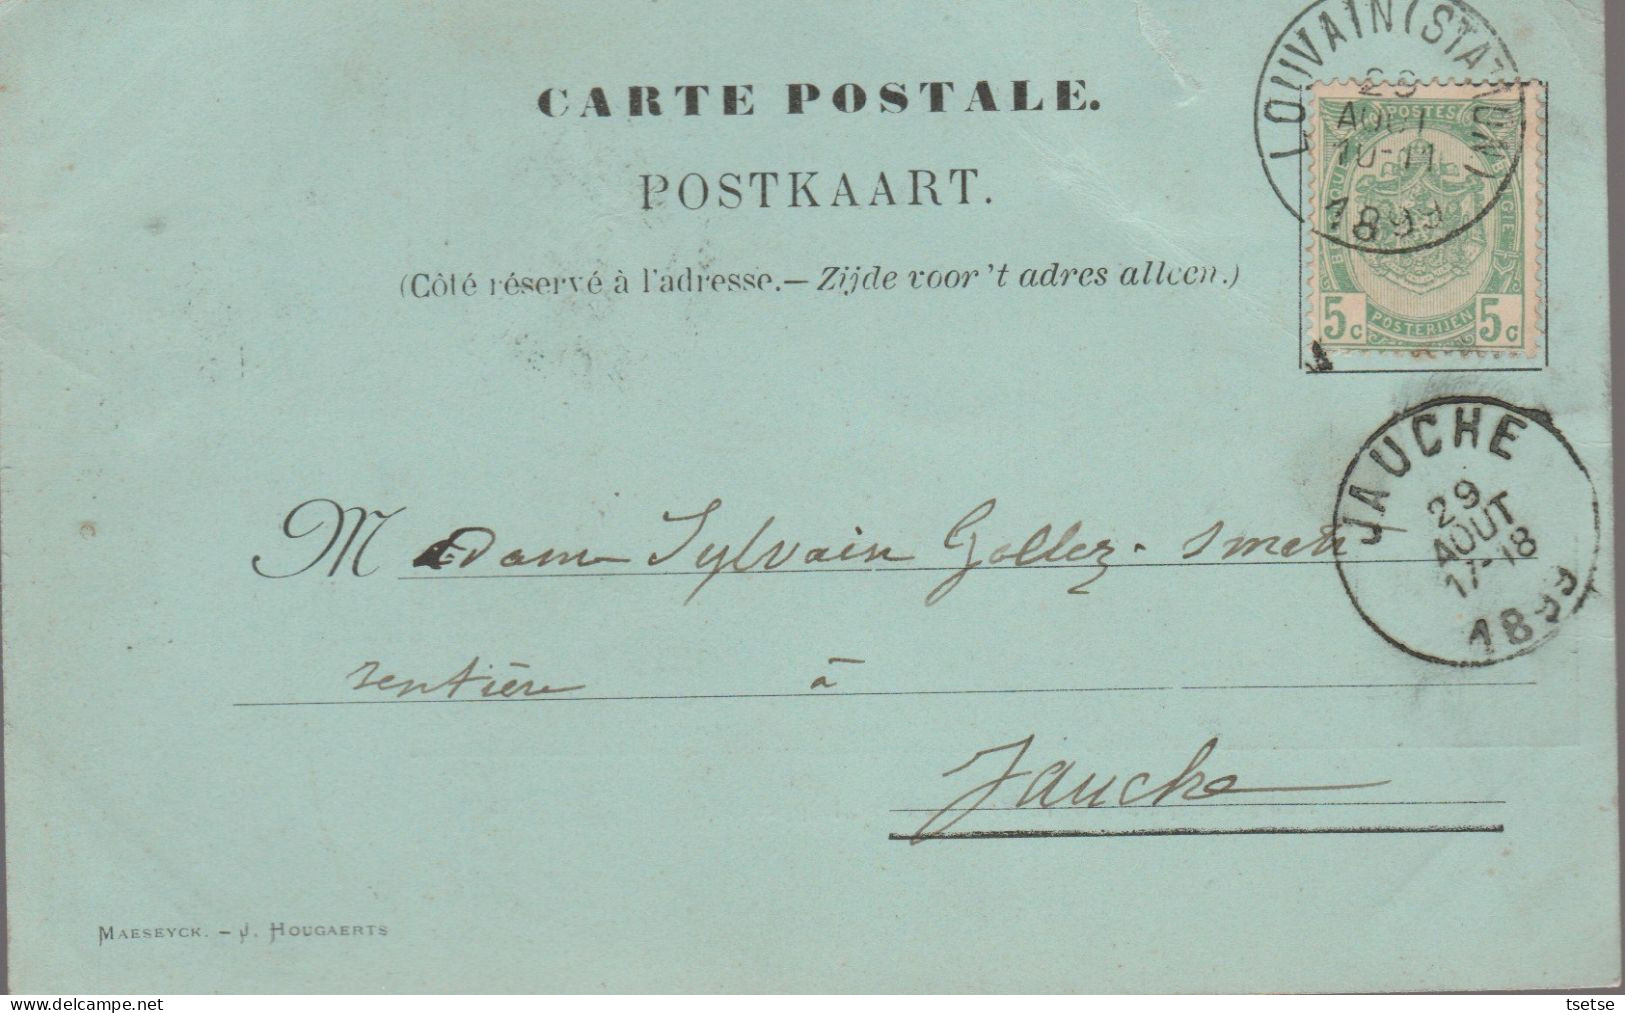 CARTE POSTALE.
POSTKAART.
(Côté réservé à l'adresse.— Zijde voor 't adres alleen.)
LOUVAIN (STATION)
29
AOUT
10-11
1899
POSTES
BELGIQUE
BELGIE
5c POSTERIJEN 5c
JAUCHE
29
AOUT
17-18
1899
Madame Sylvain Gollez-Smets
rentière à
Jauche
MAESEYCK. – J. HOUGAERTS
www.delcampe.net
tsetse